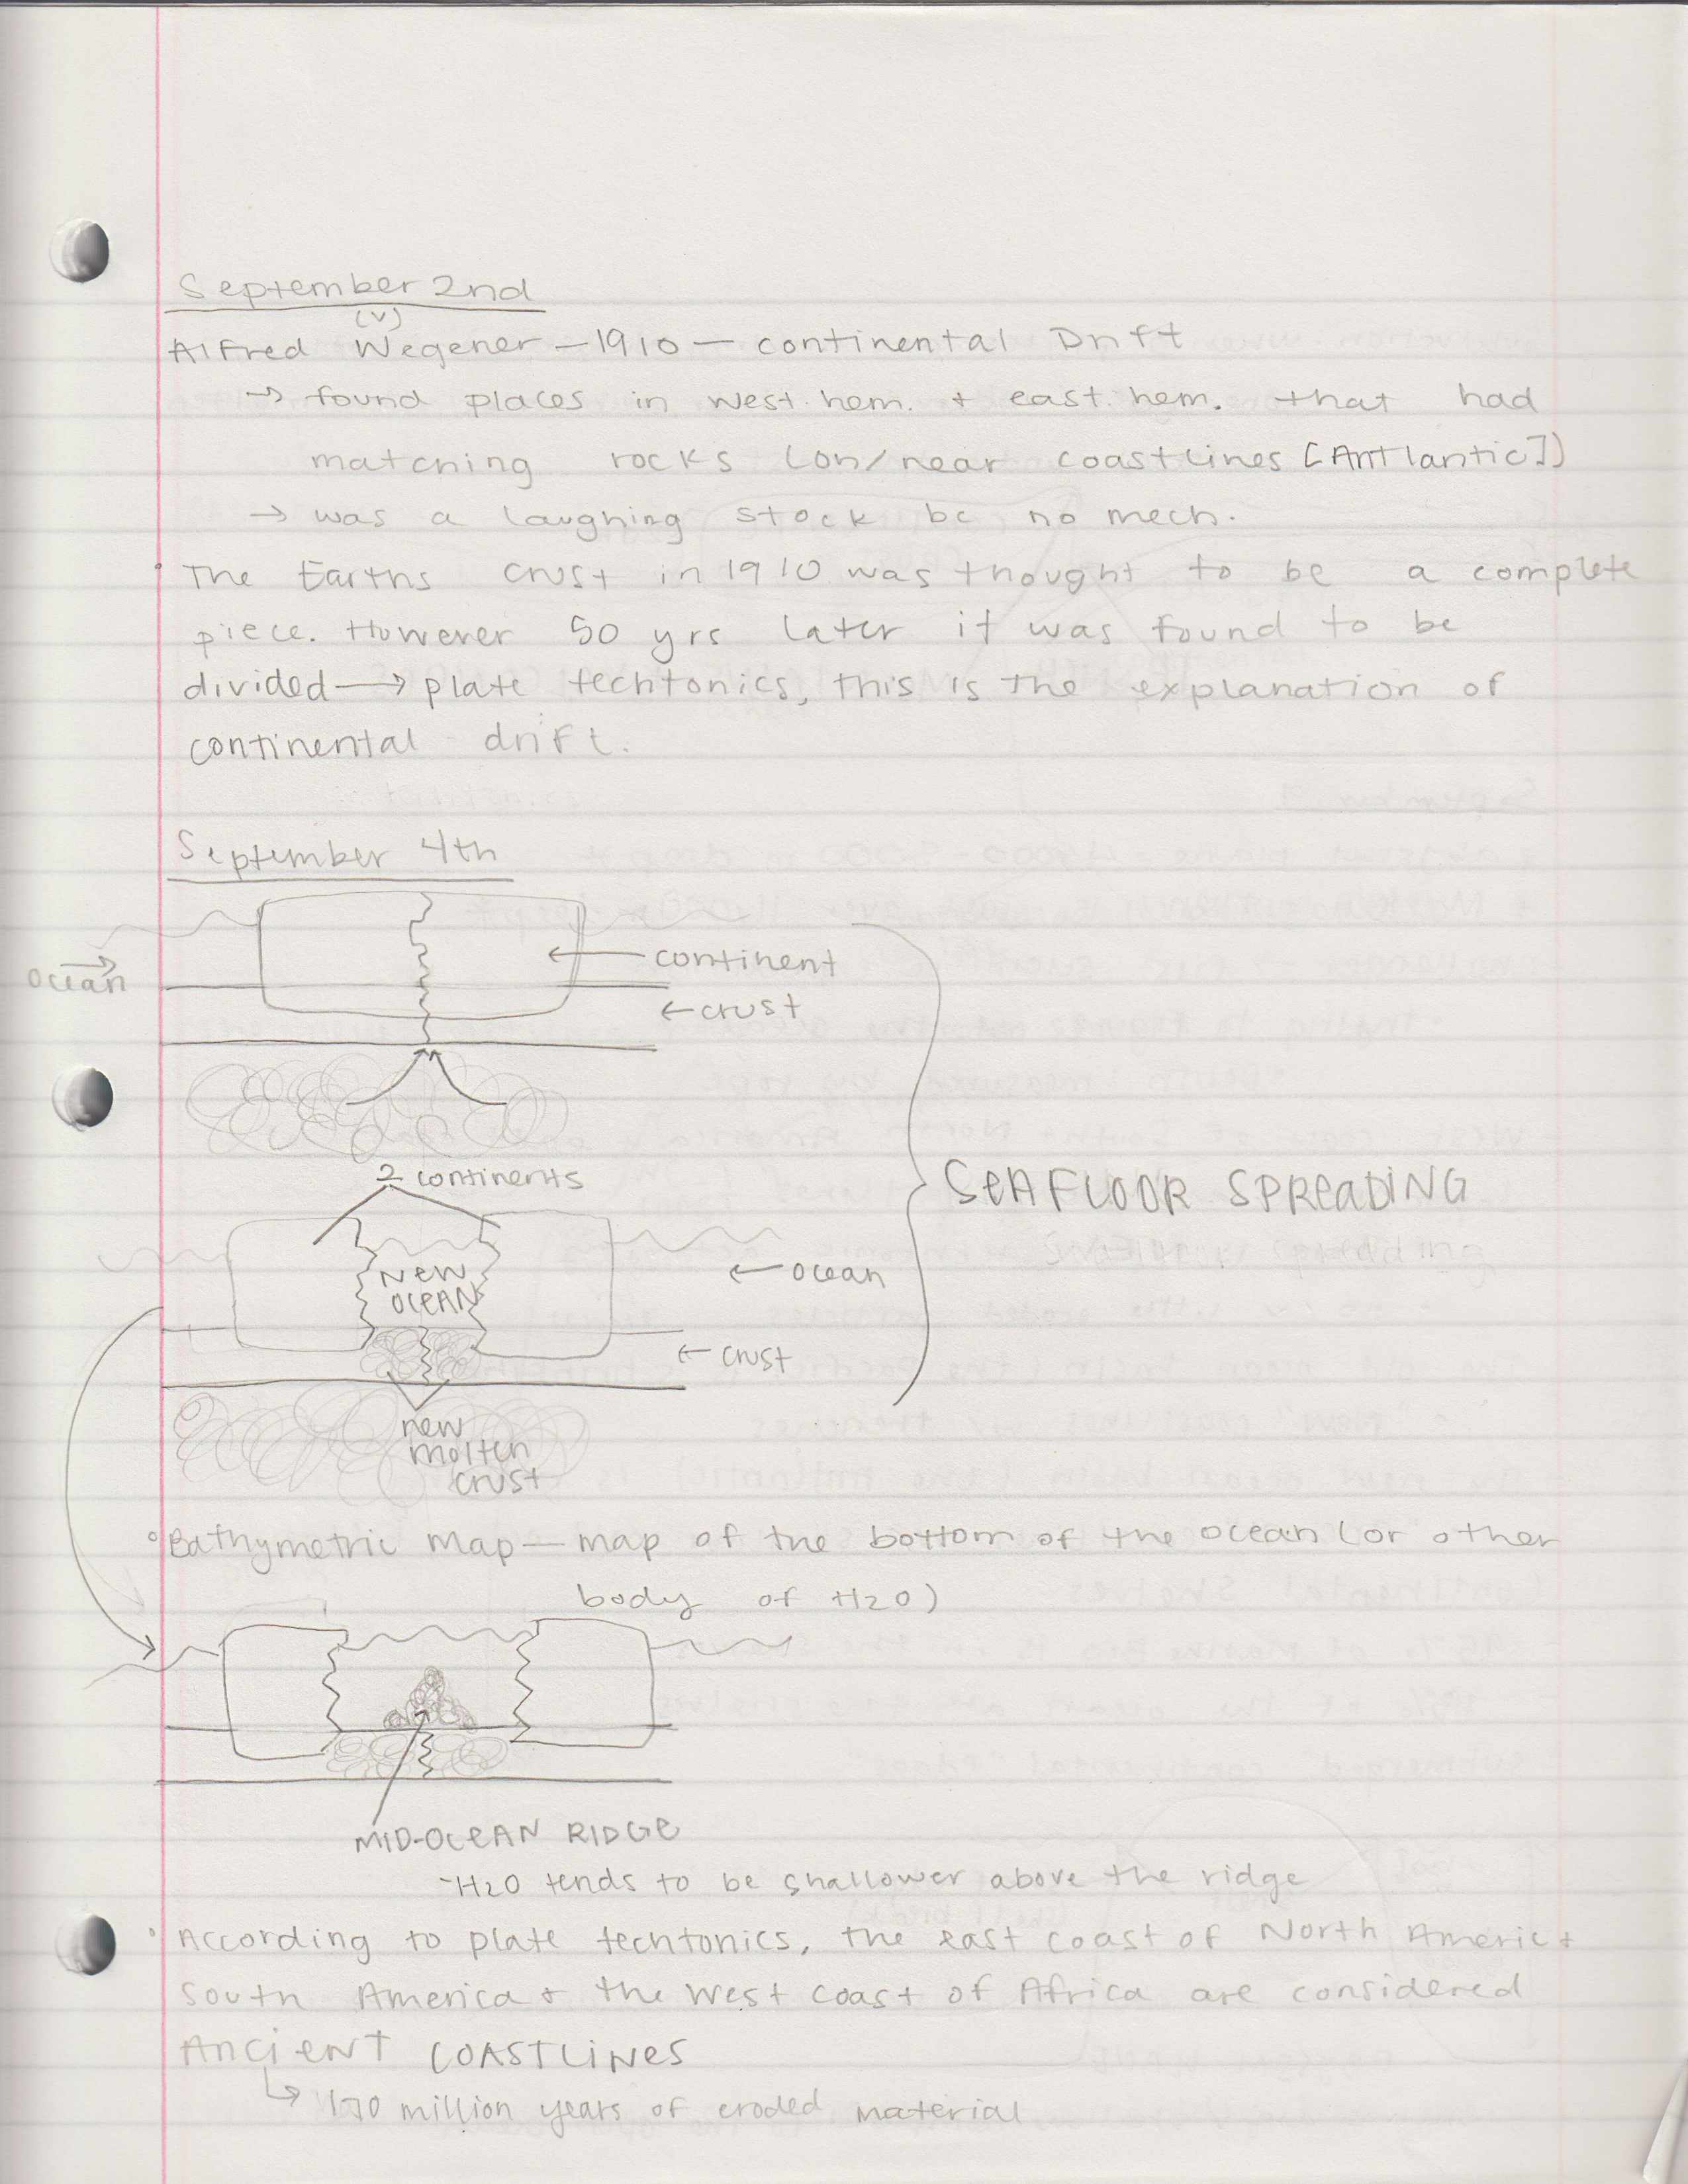 September 2nd
(V)
Alfred Wegener – 1910 – continental Drift
→ found places in west. hem. + east. hem. that had
matching rocks (on/near coastlines [Antlantic])
→ was a laughing stock bc no mech.
• The Earths crust in 1910 was thought to be a complete
piece. However 50 yrs later it was found to be
divided → plate techtonics, this is the explanation of
continental drift.
September 4th
Ocean →
← continent
← crust
2 continents
SEAFLOOR SPREADING
NEW
OCEAN
← ocean
← crust
new
molten
crust
° Bathymetric Map – map of the bottom of the ocean (or other
body of H2O)
MID-OCEAN RIDGE
- H2O tends to be shallower above the ridge
• According to plate techtonics, the east coast of North Americ +
South America + the west coast of Africa are considered
ANCIENT COASTLINES
↳ 170 million years of eroded material